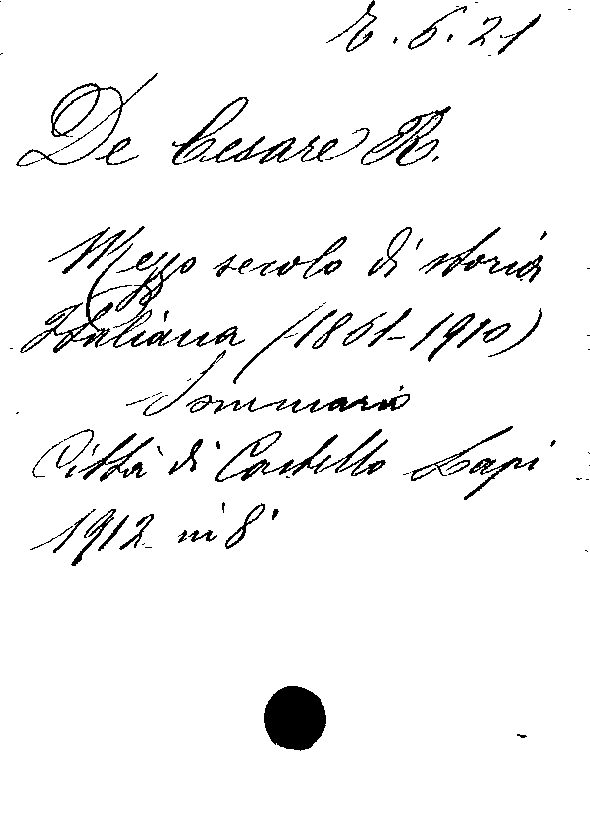 E. 6. 21
De Cesare R.
Mezzo secolo di storia
Italiana (1861-1910)
Sommario
Città di Castello Lapi
1912 in 8°